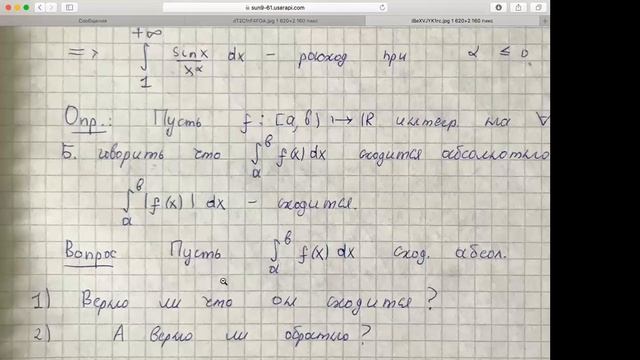 sun9-61.userapi.com
Сообщения
dT2C1nFAFOA.jpg 1 620×2 160 пикс
dBeXVJYK1rc.jpg 1 620×2 160 пикс
=> ∫₁^{+∞} sinx/x^α dx – расход при α ≤ 0
Опр.: Пусть f: [a, b) ↦ ℝ интегр. на ∀
Б. говорить что ∫ₐᵇ f(x) dx сходится абсолютно
∫ₐᵇ |f(x)| dx – сходится.
Вопрос Пусть ∫ₐᵇ f(x) dx сход. абсол.
1) Верно ли что он сходится?
2) А верно ли обратно?